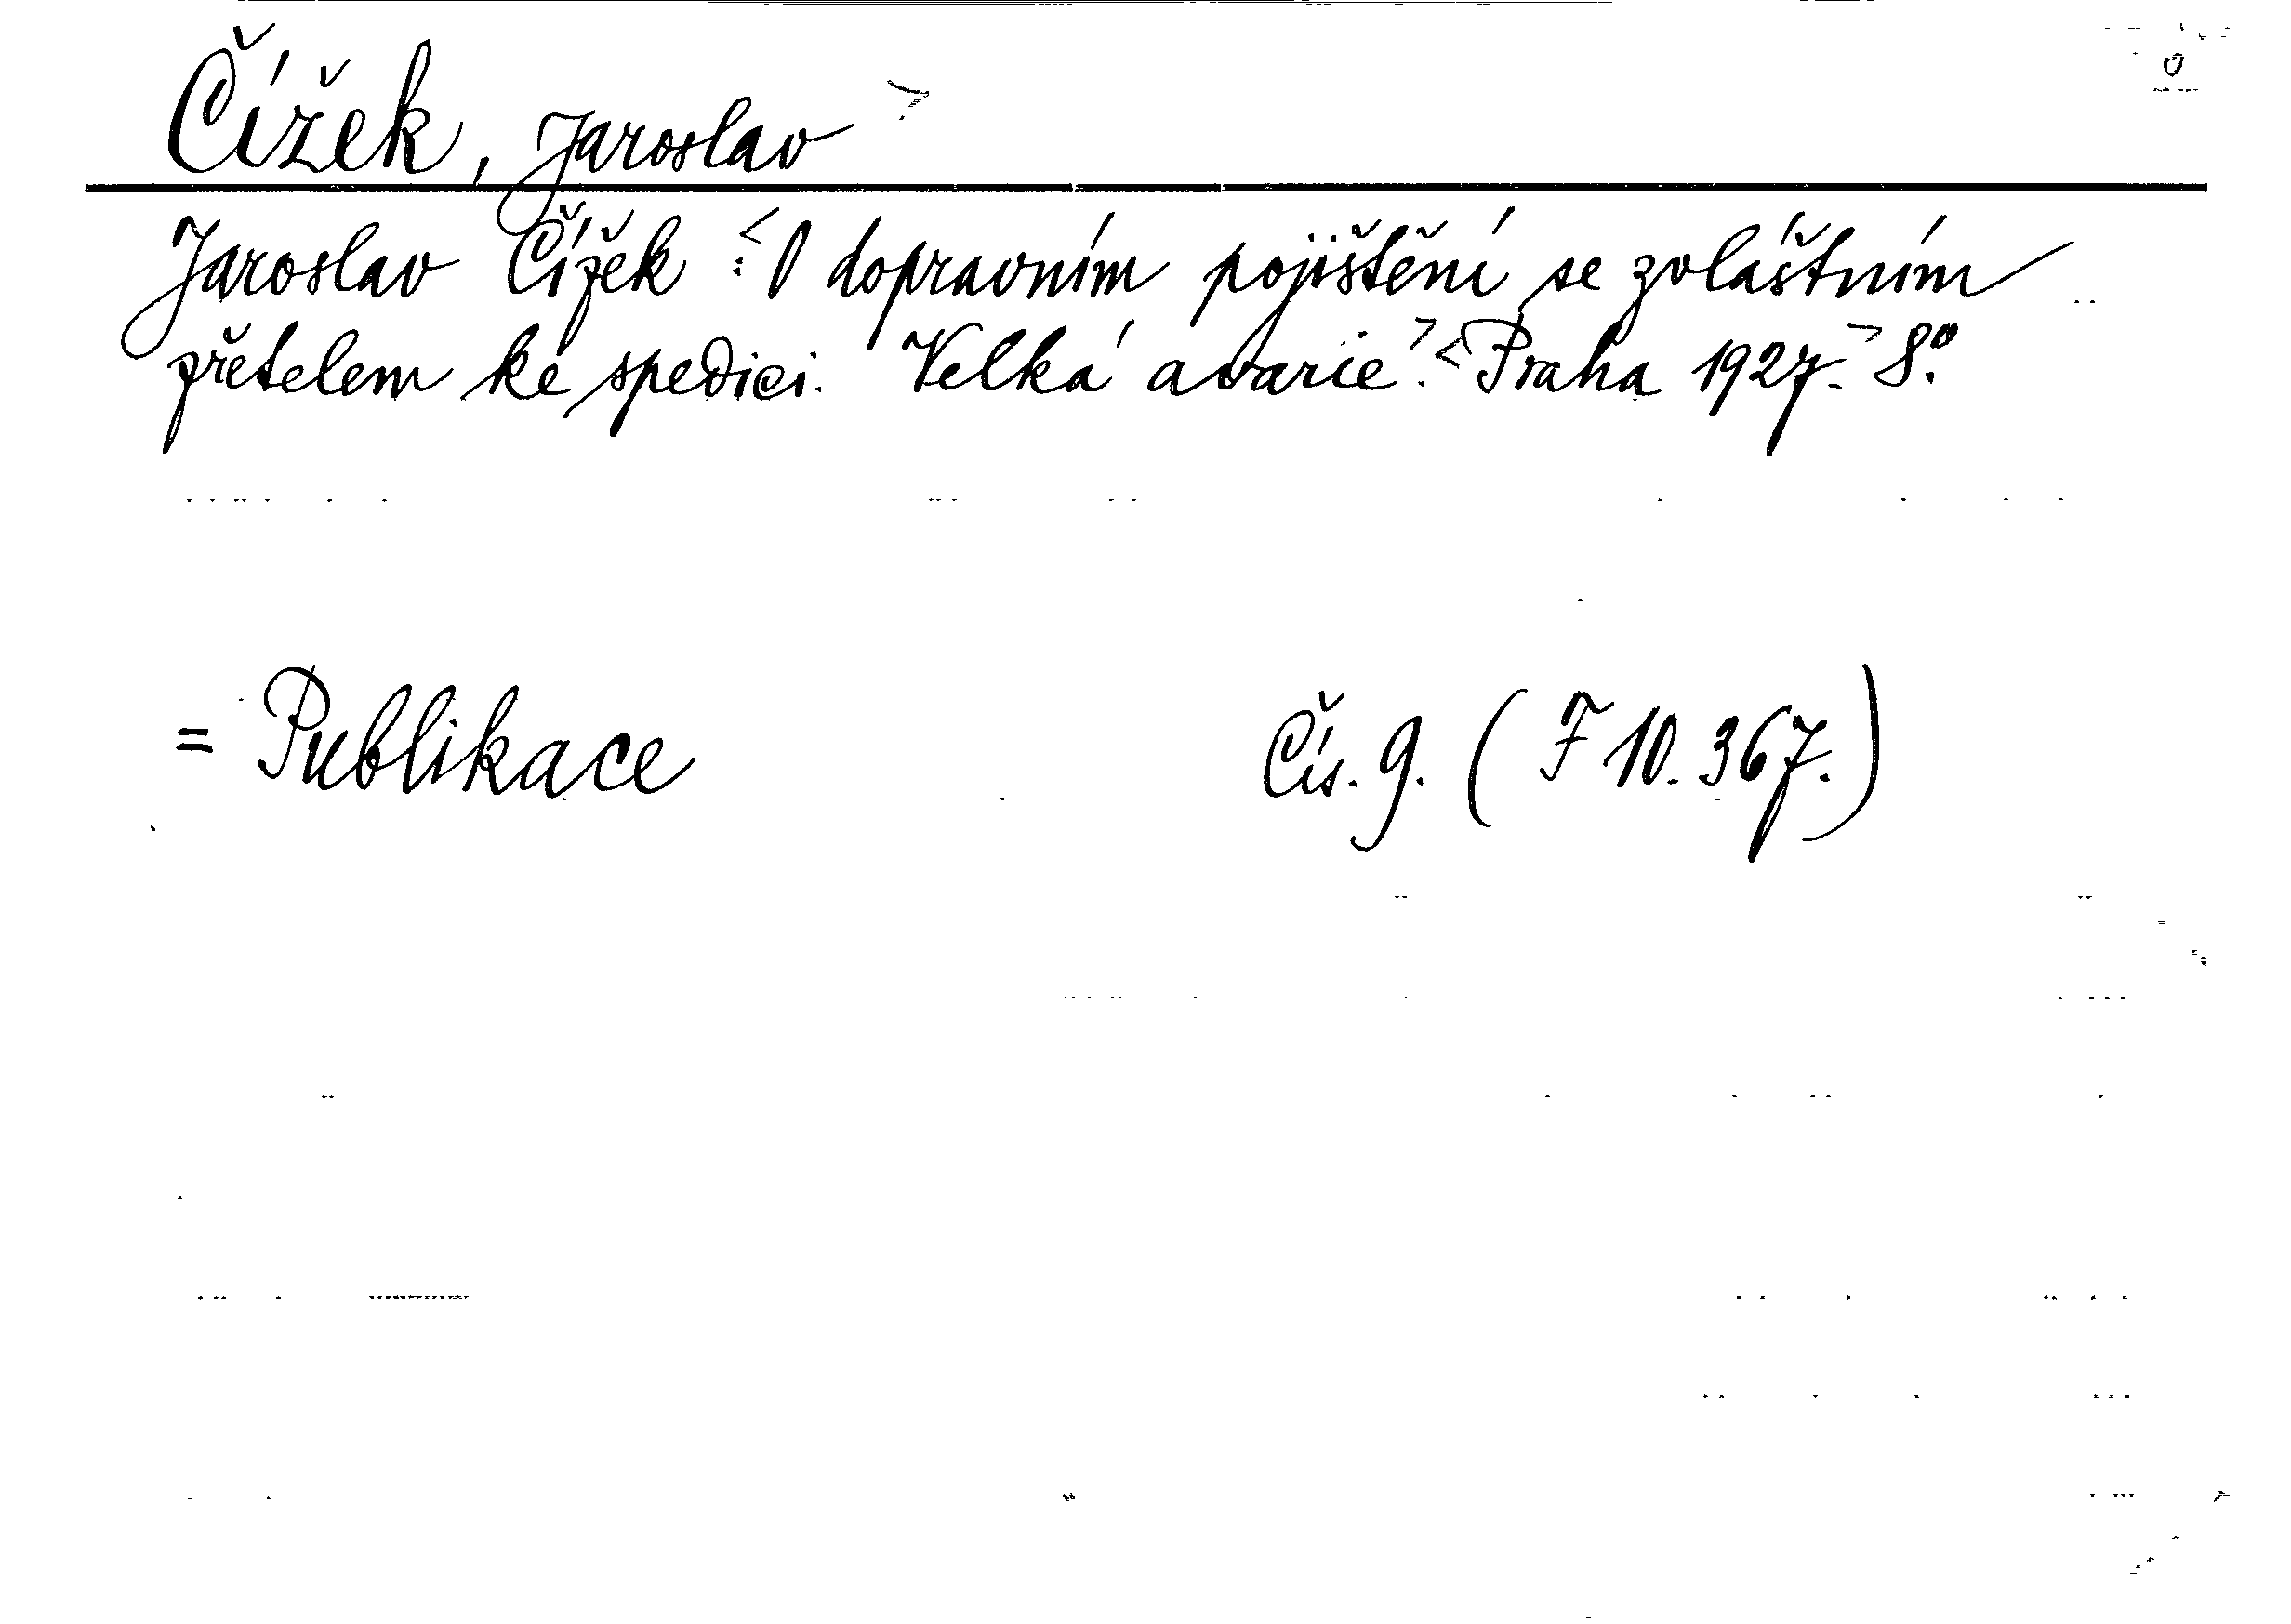 Čížek, Jaroslav >
Jaroslav Čížek : < O dopravním pojištění se zvláštním
zřetelem ke spedici. Velká avarie. > < Praha 1927. > 8.°
= Publikace Čís. 9. (F 10.367.)